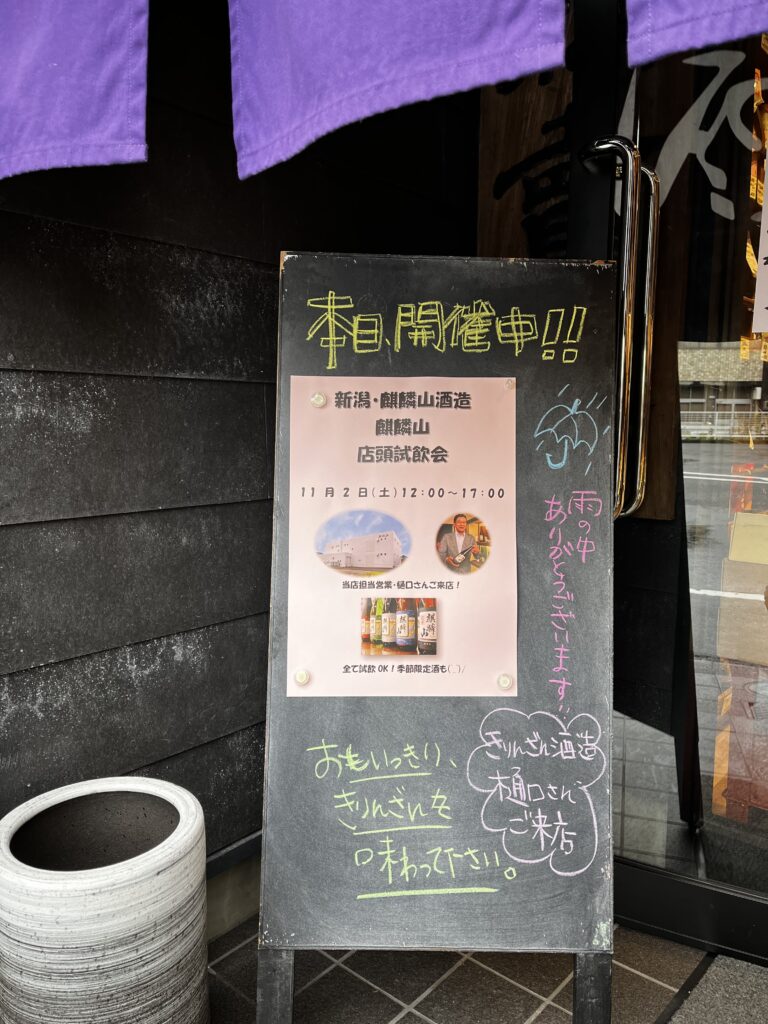 本日、開催中!!
新潟・麒麟山酒造
麒麟山
店頭試飲会
11月2日(土)12:00～17:00
当店担当営業・樋口さんご来店！
麒麟山
全て試飲OK！季節限定酒も(^_^)/
雨の中
ありがとうございます!!
おもいっきり、
きりんざんを
味わって下さい。
きりんざん酒造
樋口さん
ご来店